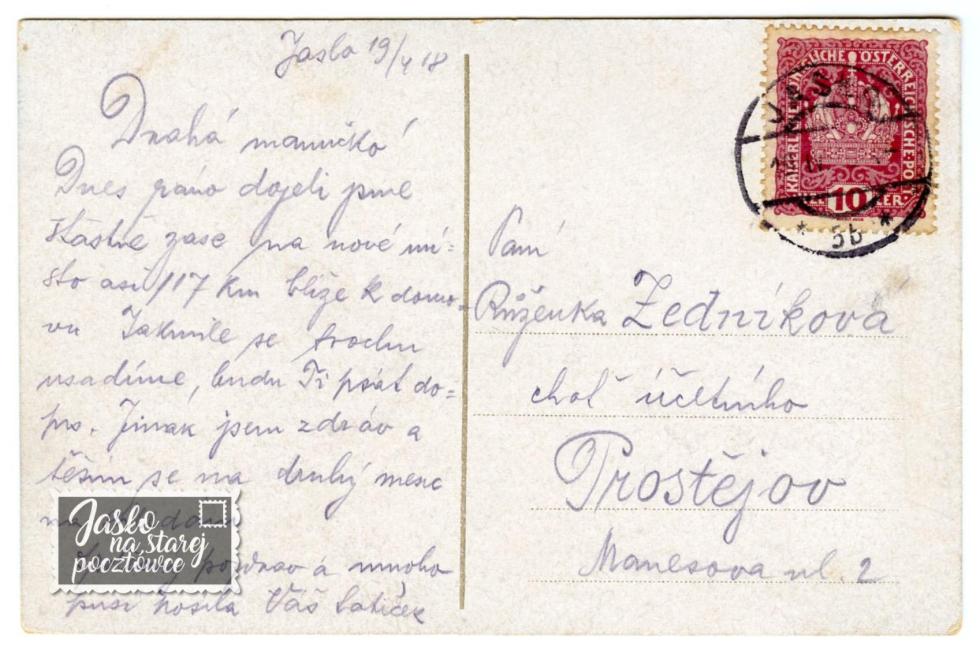 Jaslo 19/4 18
Drahá mamičko
Dnes ráno dojeli jsme
šťastně zase na nové mí-
sto asi 117 km blíže k domo-
vu Jakmile se trochu
usadíme, budu Ti psát do-
pis. Jinak jsem zdráv a
těším se na druhý mesic
pozdrav a mnoho
pusi posílá Váš tatíček
Paní
Růženka Zedníková
choť účetního
Prostějov
Manesova ul. 2
KAISERLICHE KÖNIGLICHE ÖSTERREICHISCHE POST
10
JASŁO
* 5b *
Jasło
na starej
pocztówce